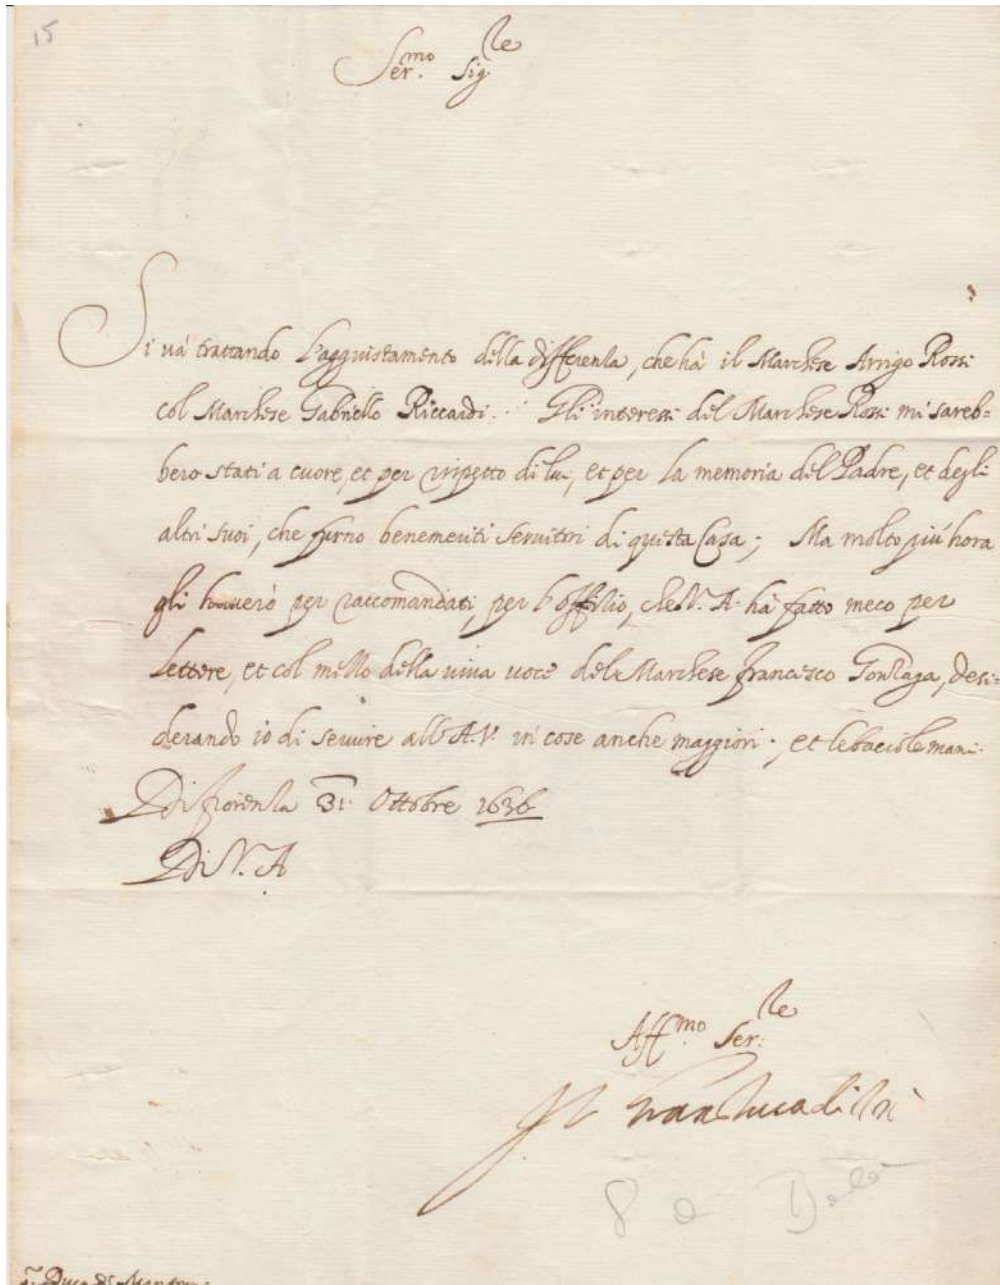 15
Ser.mo Sig.re
Si và trattando l'aggiustamento della differenza, che hà il Marchese Arrigo Rossi
col Marchese Gabriello Riccardi. Gli interessi del Marchese Rossi mi sareb=
bero stati a cuore, et per rispetto di lui, et per la memoria del Padre, et degli
altri suoi, che furno benemeriti servitori di questa Casa; Ma molto più hora
gli haverò per raccomandati, per l'offitio, che V. A. hà fatto meco per
lettere, et col mezzo della viva voce del Marchese Francesco Gonzaga, desi=
derando io di servire all'A. V. in cose anche maggiori. et le bacio le mani.
Di Fiorenza 31. Ottobre 1636
Di V. A.
Aff.mo Ser.re
Il Gran Duca di
8
S. Duca di Mantova